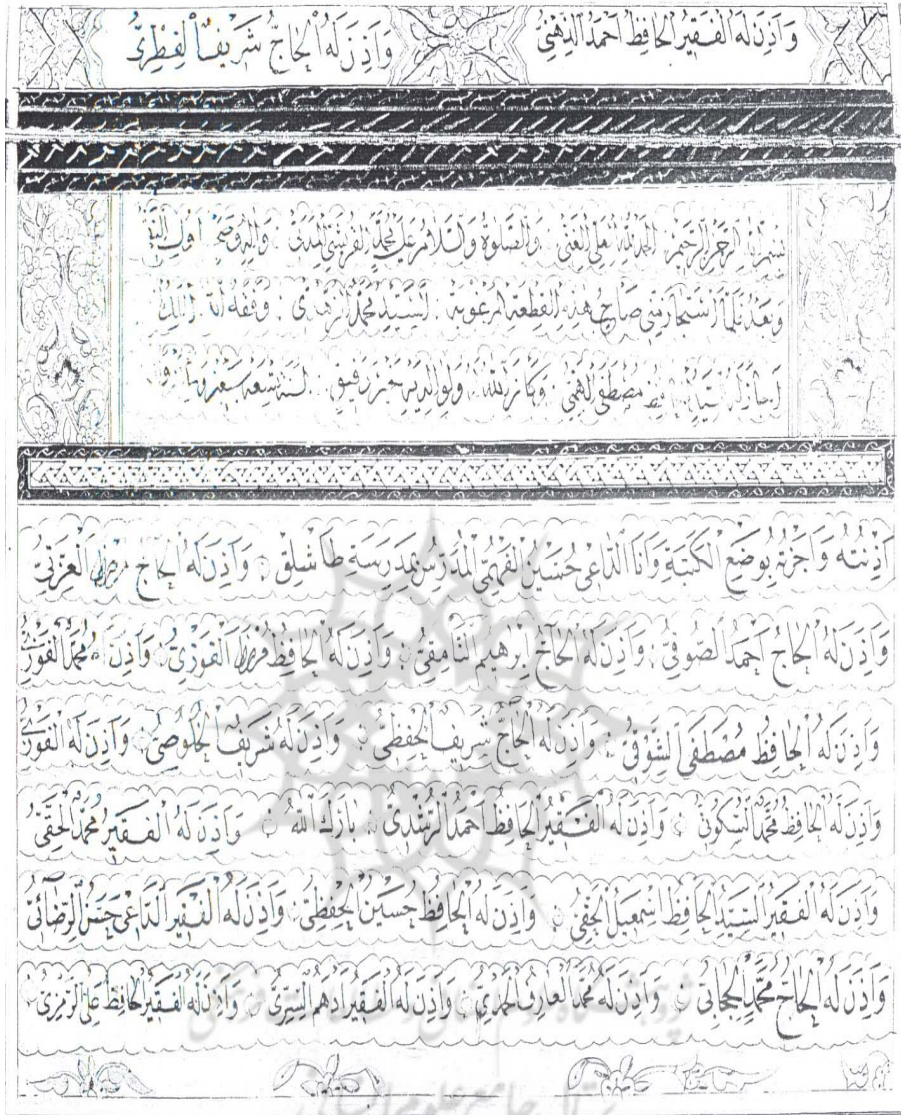 وَاَذِنَ لَهُ الْفَقِيرُ الْحَافِظُ اَحْمَدُ الذِّهْنِىُّ وَاَذِنَ لَهُ الْحَاجُّ شَرِيفُ الْفِطْرِىُّ
الرحمن الرحيم الحمد لله العلى الغنى والصلوة والسلام على محمد القرشى المدنى
وبعد فلما استجاز منى صاحب هذه القطعة المرغوبة السيد محمد الزهدى وفقه الله
مصطفى الفهمى ولوالديه
اَذِنْتُهُ وَاَجَزْتُهُ بِوَضْعِ الْكَتَبَةِ وَاَنَا الدَّاعِى حُسَيْنُ الْفَهْمِىُّ الْمُدَرِّسُ بِمَدْرَسَه طَاشْلِقْ وَاَذِنَ لَهُ الْحَاجُّ الْعَزَّتِىُّ
وَاَذِنَ لَهُ الْحَاجُّ اَحْمَدُ الصُّوفِىُّ وَاَذِنَ لَهُ الْحَاجُّ اِبْرٰهِيمُ النَّامِقِىُّ وَاَذِنَ لَهُ الْحَافِظُ الْفَوْزِىُّ وَاَذِنَ لَهُ مُحَمَّدُ الْفَوْزِىُّ
وَاَذِنَ لَهُ الْحَافِظُ مُصْطَفَى الشَّوْقِىُّ وَاَذِنَ لَهُ الْحَاجُّ شَرِيفُ الْحِفْظِىُّ وَاَذِنَ لَهُ شَرِيفُ الْخُلُوصِىُّ وَاَذِنَ لَهُ الْفَوْزِىُّ
وَاَذِنَ لَهُ الْحَافِظُ مُحَمَّدُ السُّكُونِىُّ وَاَذِنَ لَهُ الْفَقِيرُ الْحَافِظُ اَحْمَدُ الرُّشْدِىُّ بَارَكَ اللّٰهُ وَاَذِنَ لَهُ الْفَقِيرُ مُحَمَّدُ الْحَقِّىُّ
وَاَذِنَ لَهُ الْفَقِيرُ السَّيِّدُ الْحَافِظُ اِسْمٰعِيلُ الْحَقِّىُّ وَاَذِنَ لَهُ الْحَافِظُ حُسَيْنُ الْحِفْظِىُّ وَاَذِنَ لَهُ الْفَقِيرُ الدَّاعِى حَسَنُ الرِّضَائِىُّ
وَاَذِنَ لَهُ الْحَاجُّ مُحَمَّدُ وَاَذِنَ لَهُ مُحَمَّدُ الْعَارِفُ الْحَمْدِىُّ وَاَذِنَ لَهُ الْفَقِيرُ اَدْهَمُ السِّرِّىُّ وَاَذِنَ لَهُ الْفَقِيرُ الْحَافِظُ عَلِىُّ الرَّمْزِىُّ
پژوهشگاه علوم انسانی و مطالعات فرهنگی
پرتال جامع علوم انسانی